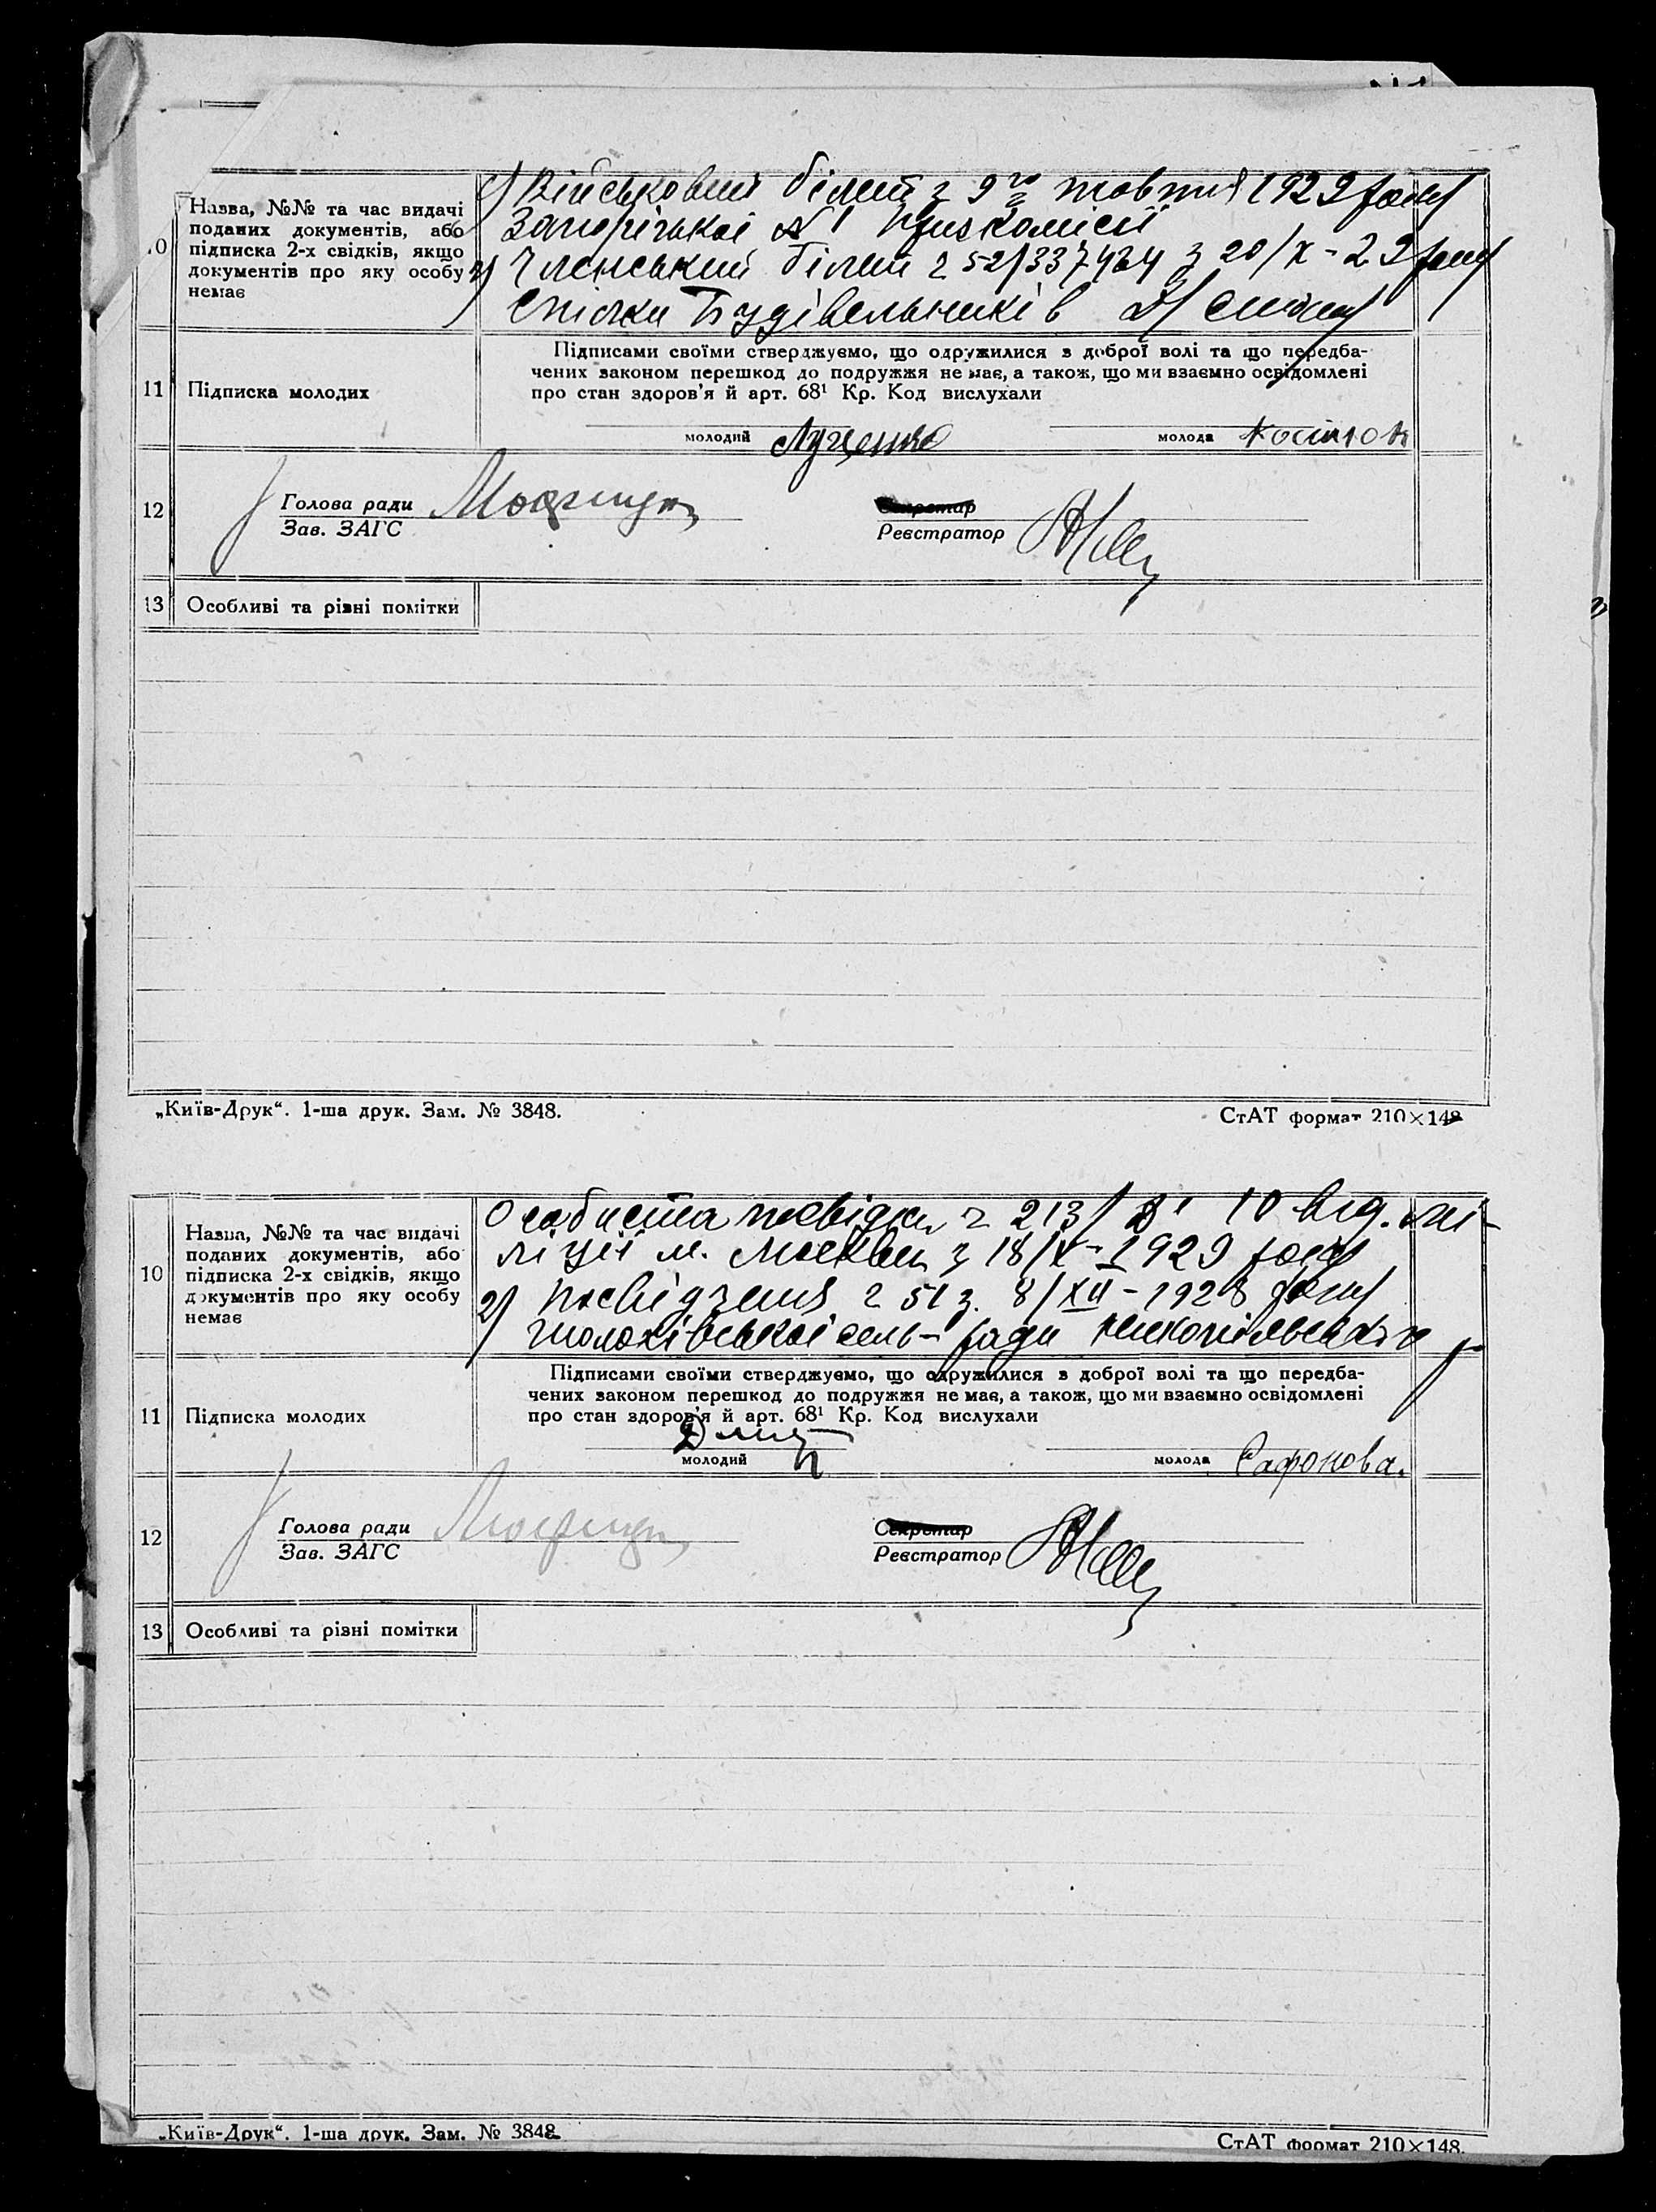 1) Військовий білет з 9го жовтня 1929 року
Назва, №№ та час видачі
поданих документів, або
підписка 2-х свідків, якщо
документів про яку особу
немає
10
Запорізької №1 Призкомісії
2) Членський білет ч 52/337464 з 20/X-29 року
Спілки Будівельників
Підписами своїми стверджуємо, що одружилися з доброї волі та що передба-
чених законом перешкод до подружжя не має, а також, що ми взаємно освідомлені
про стан здоров'я й арт. 68¹ Кр. Код вислухали
11 Підписка молодих
молодий Луценко молода
12
Голова ради
Зав. ЗАГС
Секретар
Реєстратор
13 Особливі та різні помітки
„Київ-Друк“. 1-ша друк. Зам. № 3848.
СтАТ формат 210×148
Особиста посвідка ч 213/ 10 від. мі-
Назва, №№ та час видачі
поданих документів, або
підписка 2-х свідків, якщо
документів про яку особу
немає
10
ліції м. Москви з 18/X-1929 року
2) Посвідчення ч 51 з 8/XII-1928 року
сель-ради
Підписами своїми стверджуємо, що одружилися з доброї волі та що передба-
чених законом перешкод до подружжя не має, а також, що ми взаємно освідомлені
про стан здоров'я й арт. 68¹ Кр. Код вислухали
11 Підписка молодих
молодий молода Сафонова.
12
Голова ради
Зав. ЗАГС
Секретар
Реєстратор
13 Особливі та різні помітки
„Київ-Друк“. 1-ша друк. Зам. № 3848
СтАТ формат 210×148.